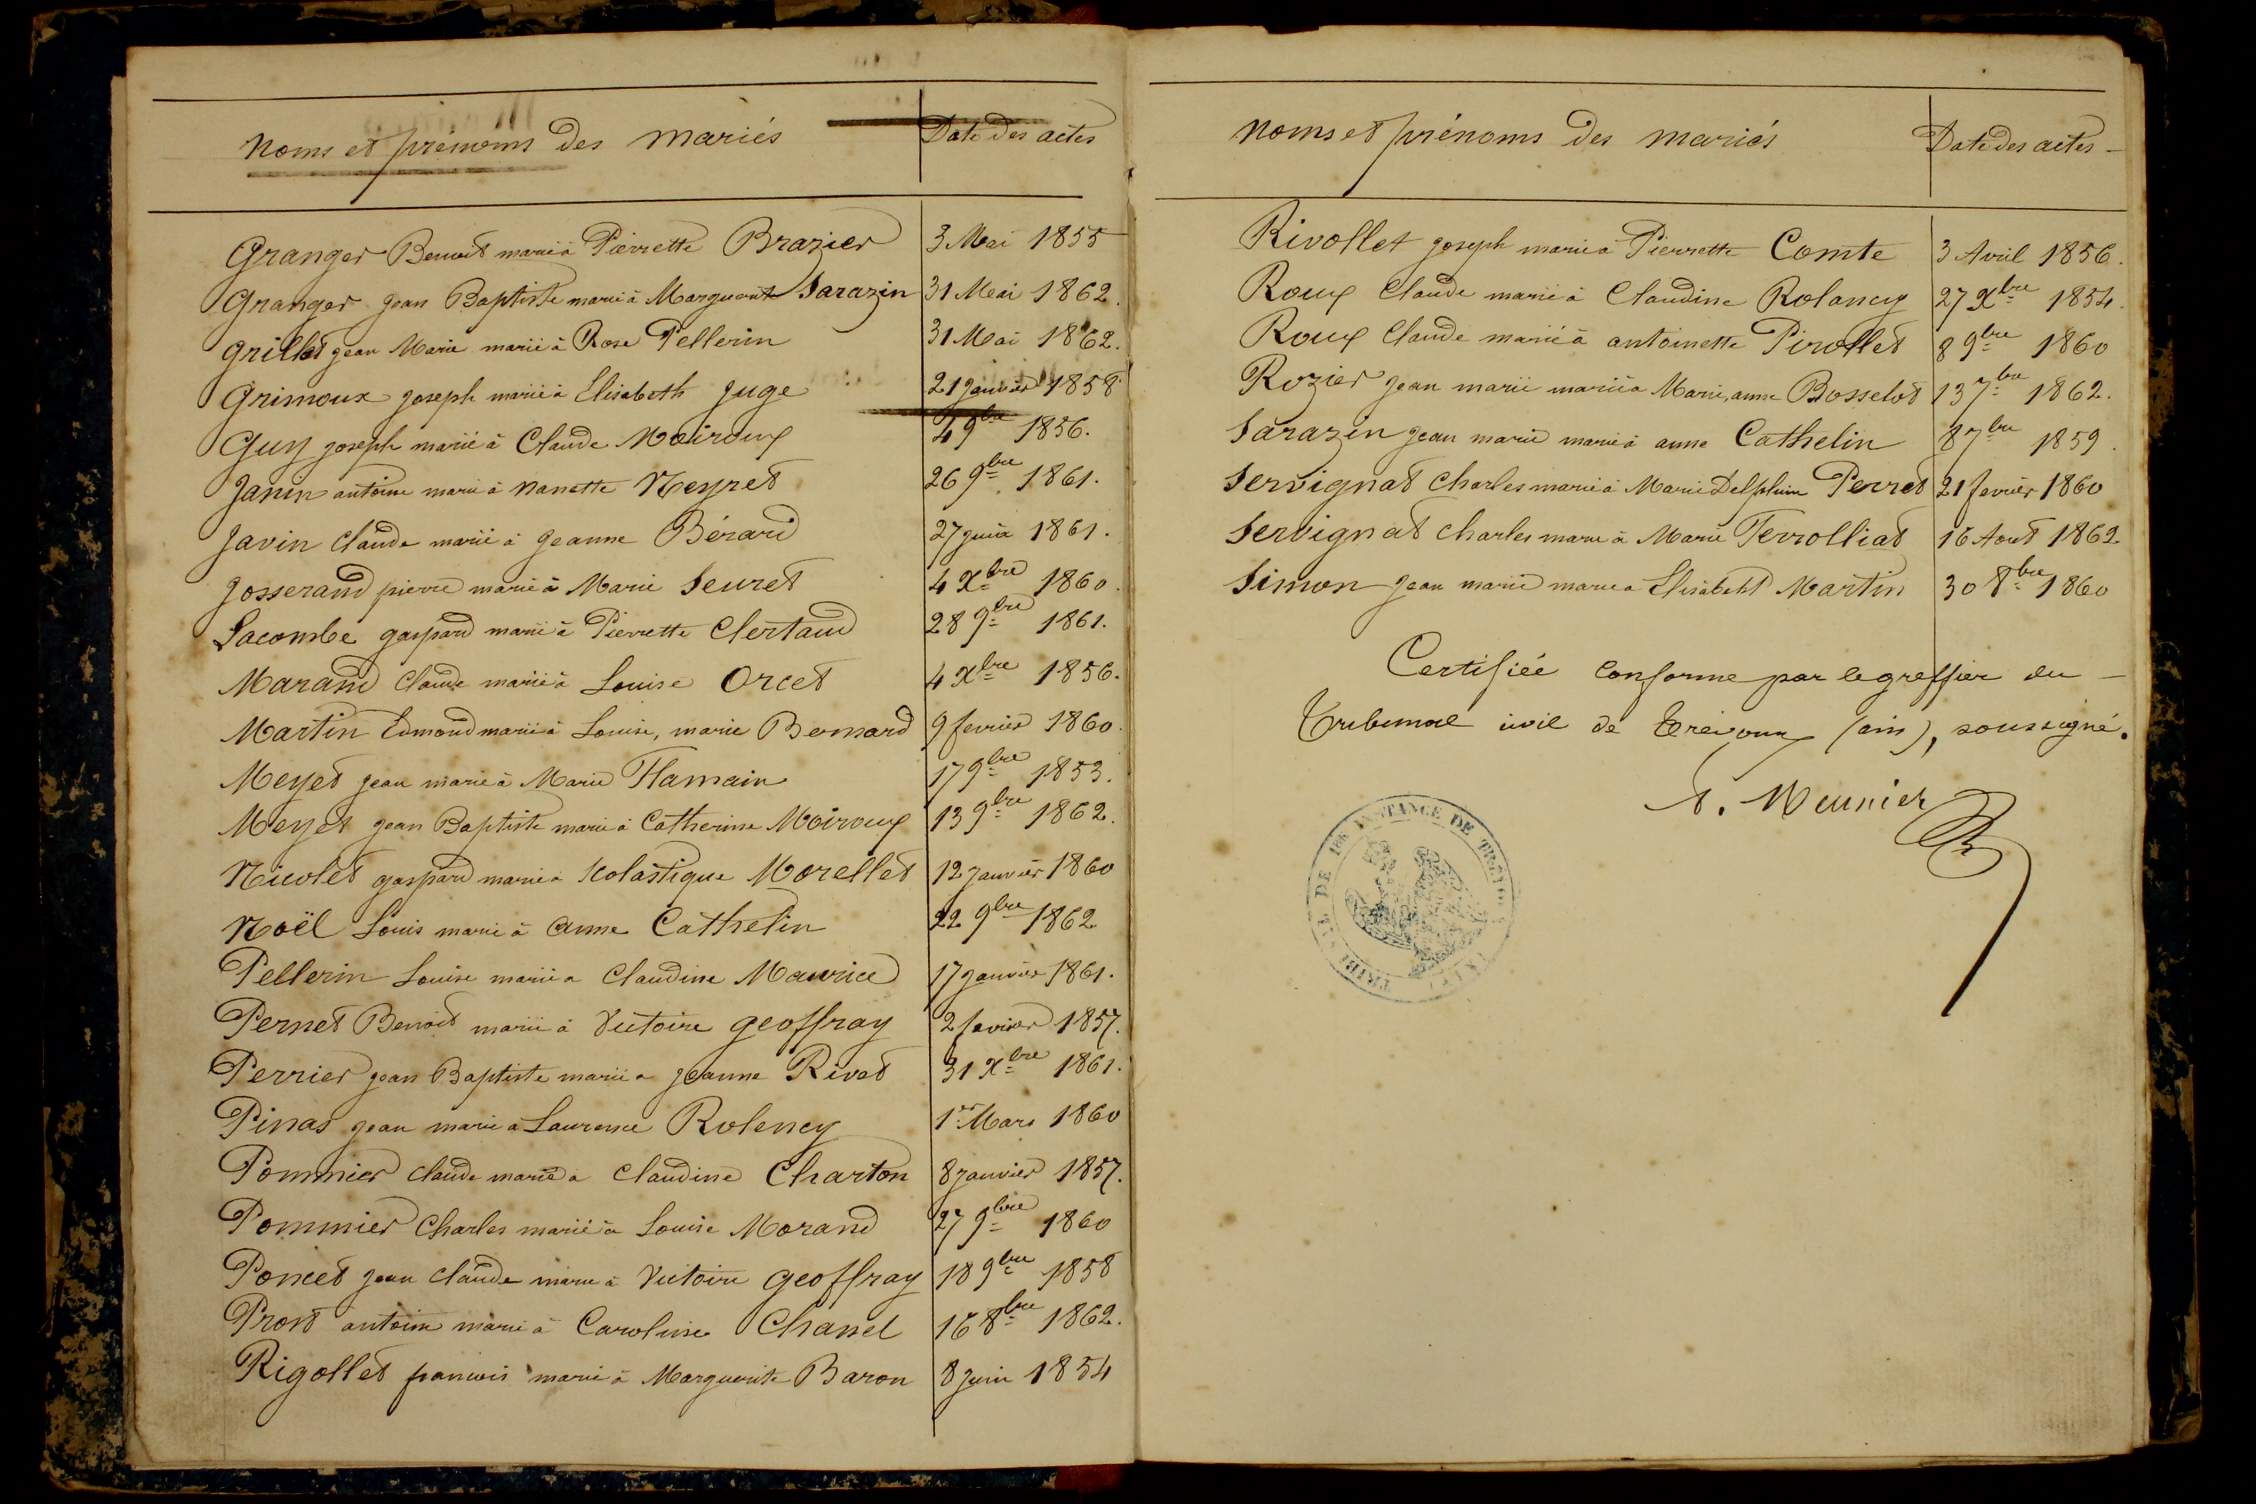 Noms et prénoms des mariés Date des actes
Granger Benoit marié à Pierrette Brazier 3 Mai 1855
Granger jean Baptiste marié à Marguerite Sarazin 31 Mai 1862.
Grillet jean Marie marié à Rose Pellerin 31 Mai 1862.
Grimoux joseph marié à Elisabeth Juge 21 janvier 1858
Guy joseph marié à Claude Moiroux 4 9bre 1856.
Janin antoine marié à Nanette Neyret 26 9bre 1861.
Javin Claude marié à Jeanne Bérard 27 juin 1861.
Josserand pierre marié à Marie Seuret 4 Xbre 1860.
Lacombe gaspard marié à Pierrette Clertaud 28 9bre 1861.
Marand Claude marié à Louise Orcet 4 Xbre 1856.
Martin Edmond marié à Louise, marie Bernard 9 fevrier 1860.
Meyet jean marié à Marie Flamain 17 9bre 1853.
Meyet jean Baptiste marié à Catherine Moiroux 13 9bre 1862.
Nicolet gaspard marié à Scolastique Morellet 12 janvier 1860
Noël Louis marié à anne Cathelin 22 9bre 1862
Pellerin Louise marié a Claudine Maurice 17 janvier 1861.
Pernet Benoit marié à Victoire Geoffray 2 fevrier 1857.
Perrier jean Baptiste marié a jeanne Rivat 31 Xbre 1861.
Pinas jean marié à Laurence Rolency 1er Mars 1860
Pommier Claude marié a Claudine Charton 8 janvier 1857.
Pommier Charles marié à Louise Morand 27 9bre 1860
Poncet jean Claude marié à Victoire Geoffray 18 9bre 1858
Prost antoine marié à Caroline Chanel 16 8bre 1862.
Rigollet francois marié à Marguerite Baron 8 juin 1854
Noms et prénoms des mariés Date des actes -
Rivollet joseph marié à Pierrette Comte 3 Avril 1856.
Roux Claude marié à Claudine Rolancy 27 Xbre 1854.
Roux Claude marié à antoinette Pirollet 8 9bre 1860
Rozier jean marie marié a Marie, anne Bosselot 13 7bre 1862.
Sarazin jean marie marié à anne Cathelin 8 7bre 1859.
Servignat Charles marié à Marie Delphine Perret 21 fevrier 1860
Servignat Charles marié à Marie Terrolliat 16 Aout 1862
Simon jean marie marié a Elisabeth Martin 30 8bre 1860
Certifiée conforme par le greffier du -
Tribunal civil de Trévoux (ain), soussigné.
Meunier
TRIBUNAL DE 1ERE INSTANCE DE TREVOUX